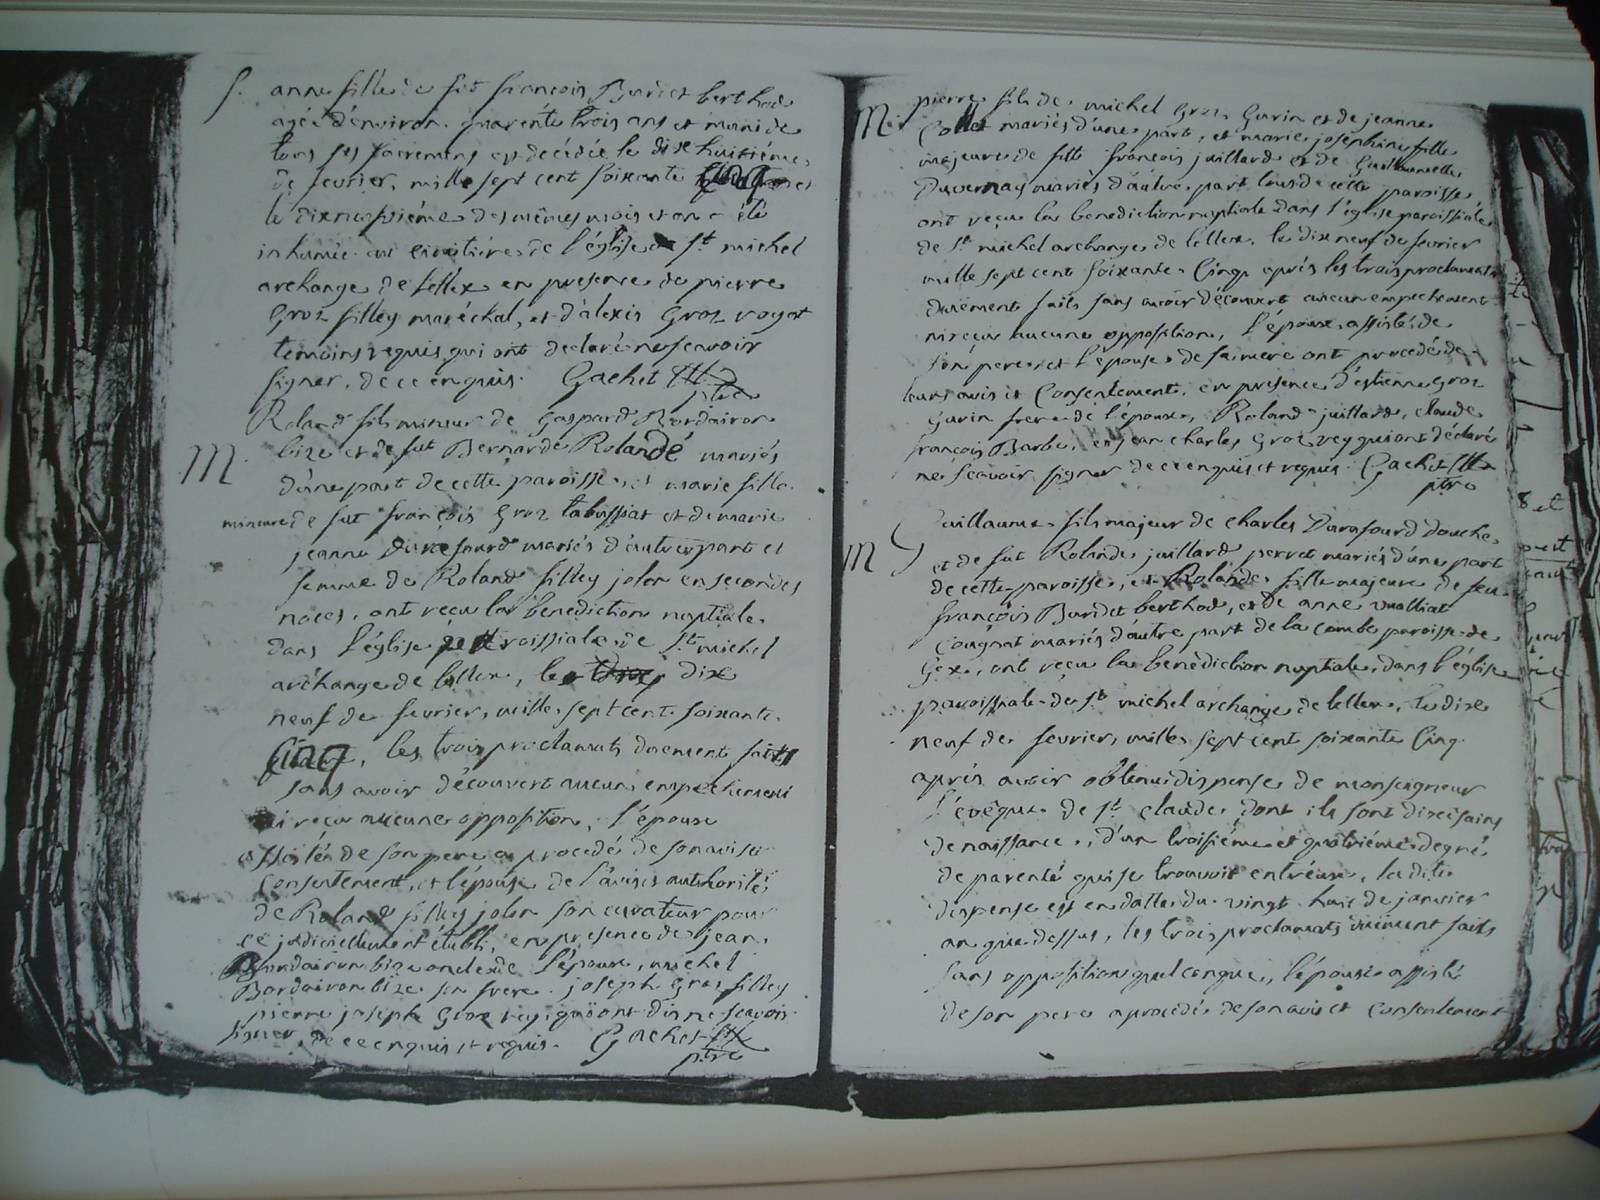 S. anne fille de fut françois Burdet berthod
agée d'environ quarente trois ans et munide
tous ses sacremens est decedée le dixe huitiéme
de fevrier, mille sept cent soixante
le dixneufviéme des mêmes mois et an a été
inhumée au cimitiere de l'église de St michel
archange de lellex en presence de pierre
Groz filley maréchal, et d'alexis Groz voyat
temoins requis qui ont declaré ne scavoir
signer, de ce enquis. Gachet
ptre
Roland fils mineur de Gaspard Bordairon
M. bize et de fut Bernarde Rolandé mariés
d'une part de cette paroisse, et marie fille
mineure de fut françois Groz tabussiat et de marie
jeanne Durafourd mariés d'autre part et
femme de Roland filley jolon en secondes
noces, ont reçu la benediction nuptiale
dans l'église paroissiale de St michel
archange de lellex, le dixe
neuf de fevrier, mille sept cent soixante
Cinq, les trois proclamats duement faits
sans avoir découvert aucun empechement
ni reçu aucune opposition, l'époux
assisté de son pere a procedé de son avis et
consentement, et l'épouse de l'avis et authorité
de Roland filley jolon son curateur pour
ce judiciellement établi, en presence de jean
Bordairon bize oncle de l'époux, michel
Bordairon bize son frere joseph Groz filley
pierre joseph Groz vey, qui ont dis ne scavoir
signer, de ce enquis et requis. Gachet
ptre
pierre fils de michel Groz Gurin et de jeanne
M. Collet mariés d'une part, et marie josephine fille
majeure de fut françois juillard et de Guillaumette
Duvernay mariés d'autre part tous de cette paroisse
ont reçu la benediction nuptiale dans l'église paroissiale
de St michel archange de lellex, le dix neuf de fevrier
mille sept cent soixante Cinq, aprés les trois proclamats
duement faits sans avoir découvert aucun empechement
ni reçu aucune opposition, l'époux assisté de
son pere et l'épouse de sa mere ont procedé de
leurs avis et Consentement, en presence d'estienne Groz
Gurin frere de l'époux, Roland juillard, claude
françois Barbe, et jean charles Groz vey qui ont déclaré
ne scavoir signer de ce enquis et requis. Gachet
ptre
Guillaume fils majeur de charles Durafourd douche
M et de fut Rolande juillard perret mariés d'une part
de cette paroisse, et Rolande fille majeure de feu
françois Burdet berthod, et de anne vualliat
Cougnat mariés d'autre part de la combe paroisse de
Gex, ont reçu la benediction nuptiale, dans l'église
paroissiale de St michel archange de lellex, le dixe
neuf de fevrier, mille sept cent soixante Cinq
aprés avoir obtenu dispense de monseigneur
l'évêque de St claude dont ils sont diocésains
de naissance, d'un troisiéme et quatriéme degré
de parenté qui se trouvoit entréux, la dite
dispense est en datte du vingt huit de janvier
an que dessus, les trois proclamats duement faits
sans opposition quelconque, l'époux assisté
de son pere a procedé de son avis et consentement